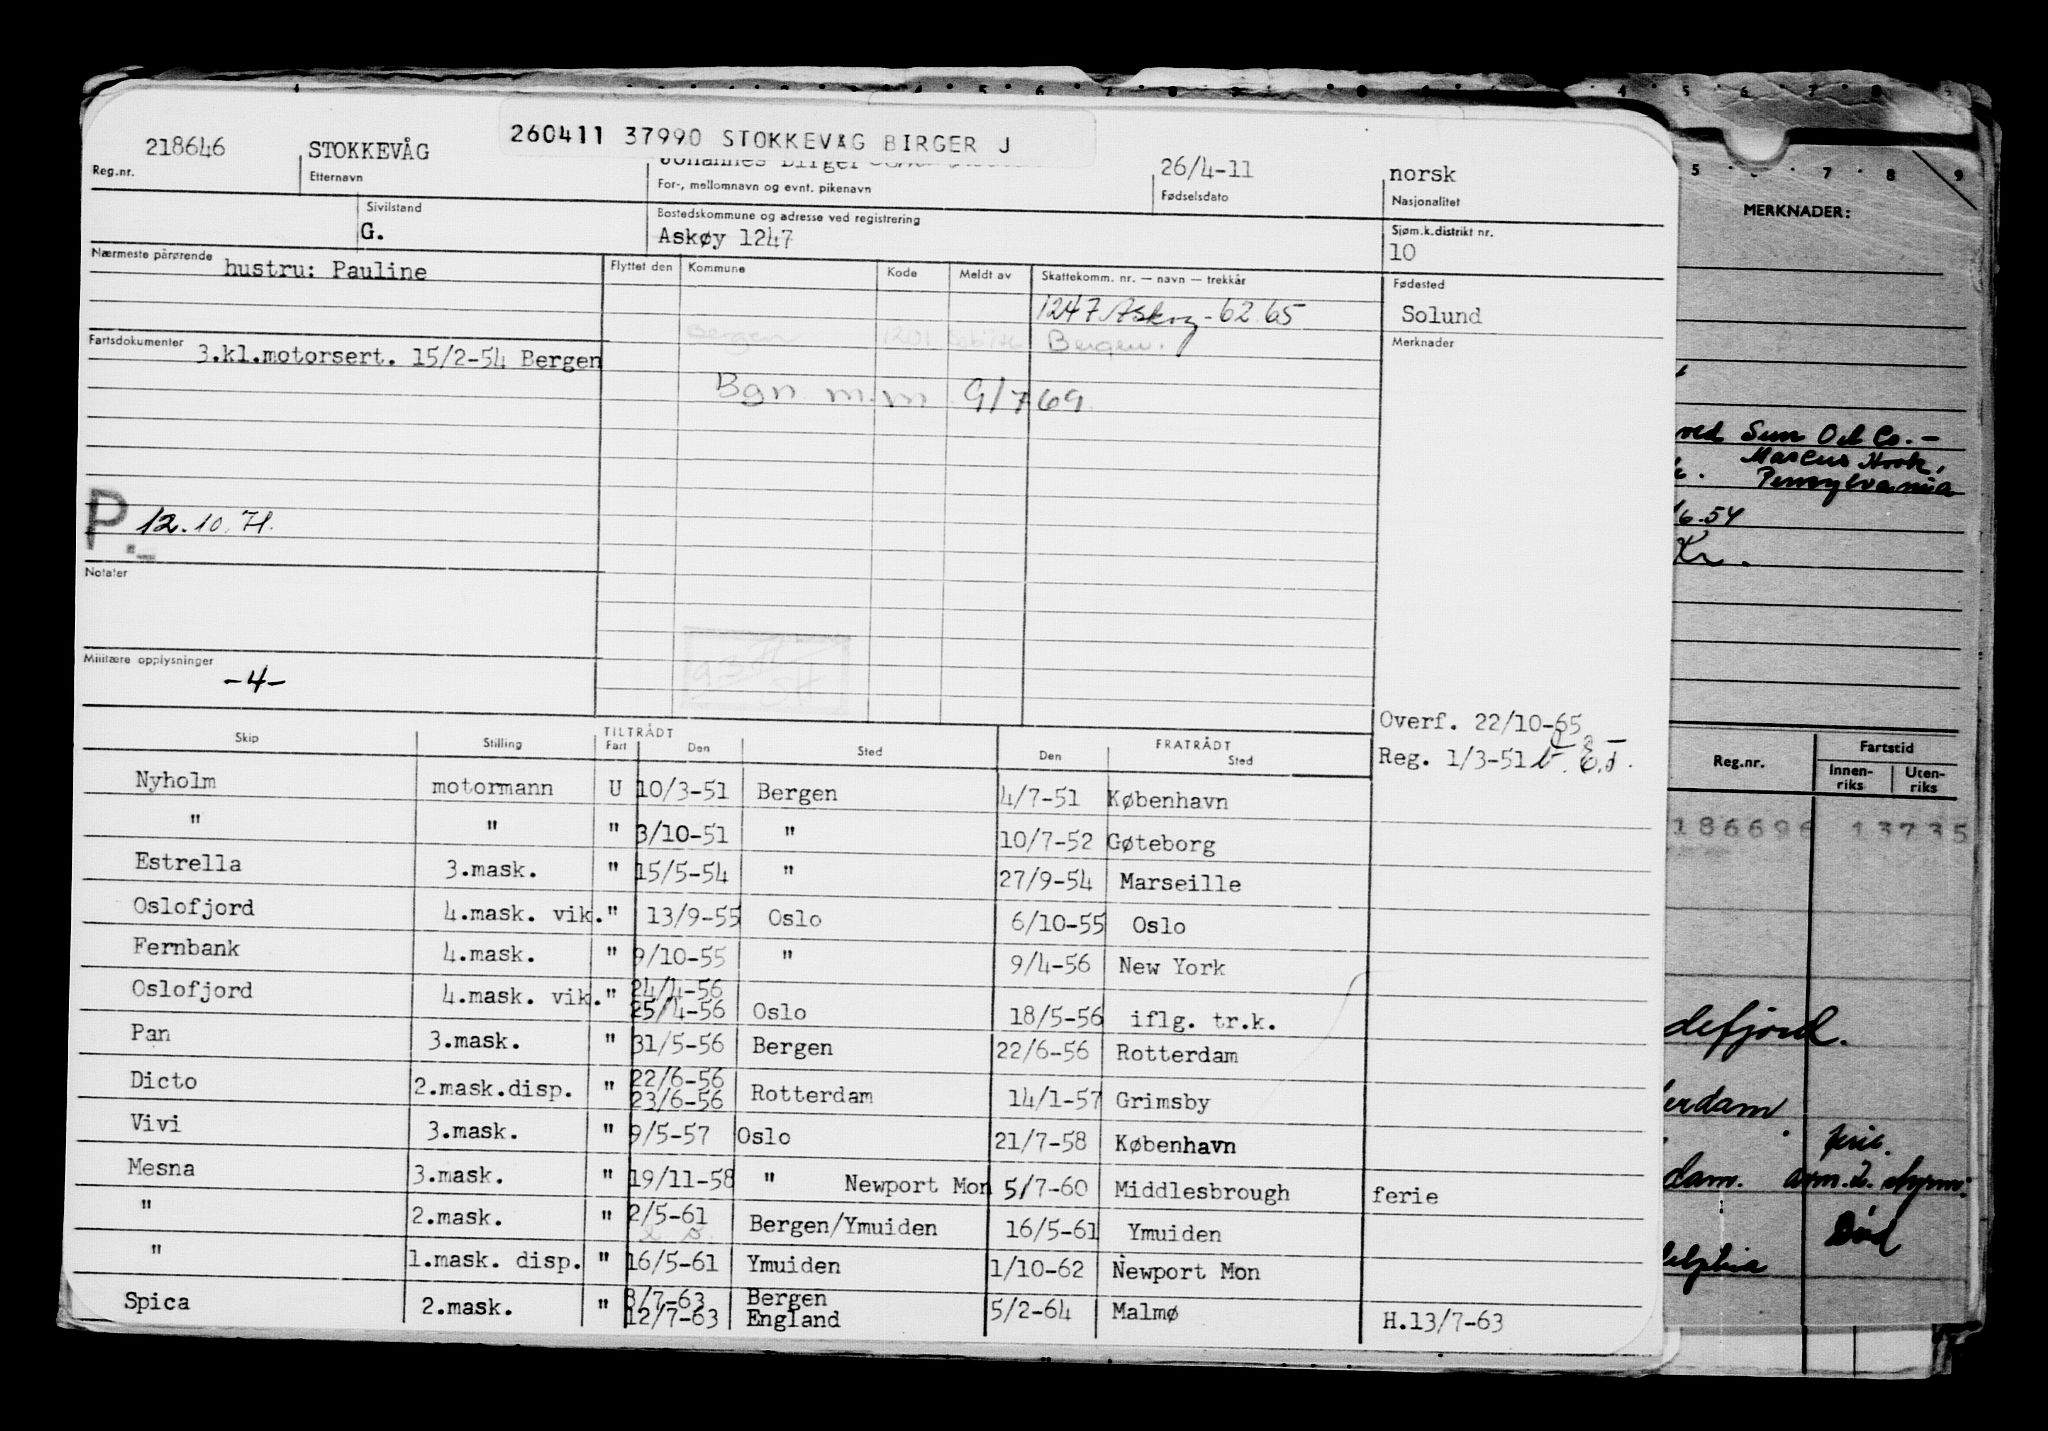 260411 37990 STOKKEVÅG BIRGER J
218646 STOKKEVÅG Johannes Birger 26/4-11 norsk
Reg.nr. Etternavn For-, mellomnavn og evnt. pikenavn Fødselsdato Nasjonalitet
Sivilstand Bostedskommune og adresse ved registrering Sjøm.k.distrikt nr.
G. Askøy 1247 10
Nærmeste pårørende hustru: Pauline Flyttet den Kommune Kode Meldt av Skattekomm. nr. — navn — trekkår Fødested
1247 Askøy - 62 65 Solund
Bergen 1201 Bergen.
Fartsdokumenter 3.kl.motorsert. 15/2-54 Bergen Merknader
Bgn m.m 9/7 69
P. 12.10.71.
Notater
Militære opplysninger
-4-
Overf. 22/10-65
Reg. 1/3-51
Skip Stilling TILTRÅDT Fart Den Sted FRATRÅDT Den Sted
Nyholm motormann U 10/3-51 Bergen 4/7-51 København
" " " 3/10-51 " 10/7-52 Gøteborg
Estrella 3.mask. " 15/5-54 " 27/9-54 Marseille
Oslofjord 4.mask. vik. " 13/9-55 Oslo 6/10-55 Oslo
Fernbank 4.mask. " 9/10-55 " 9/4-56 New York
Oslofjord 4.mask. vik. " 24/4-56
25/4-56 Oslo 18/5-56 iflg. tr.k.
Pan 3.mask. " 31/5-56 Bergen 22/6-56 Rotterdam
Dicto 2.mask.disp. " 22/6-56
23/6-56 Rotterdam 14/1-57 Grimsby
Vivi 3.mask. " 9/5-57 Oslo 21/7-58 København
Mesna 3.mask. " 19/11-58 " Newport Mon 5/7-60 Middlesbrough ferie
" 2.mask. " 2/5-61 Bergen/Ymuiden 16/5-61 Ymuiden
" 1.mask. disp. " 16/5-61 Ymuiden 1/10-62 Newport Mon
Spica 2.mask. " 8/7-63 Bergen
12/7-63 England 5/2-64 Malmø H.13/7-63
MERKNADER:
ved Sun Oil Co. -
Marcus Hook,
Pensylvania
6.54
Kr.
Reg.nr. Fartstid
Innen-riks Uten-riks
186696 13735
defjord.
erdam
ferie.
dam.
Død
delphia